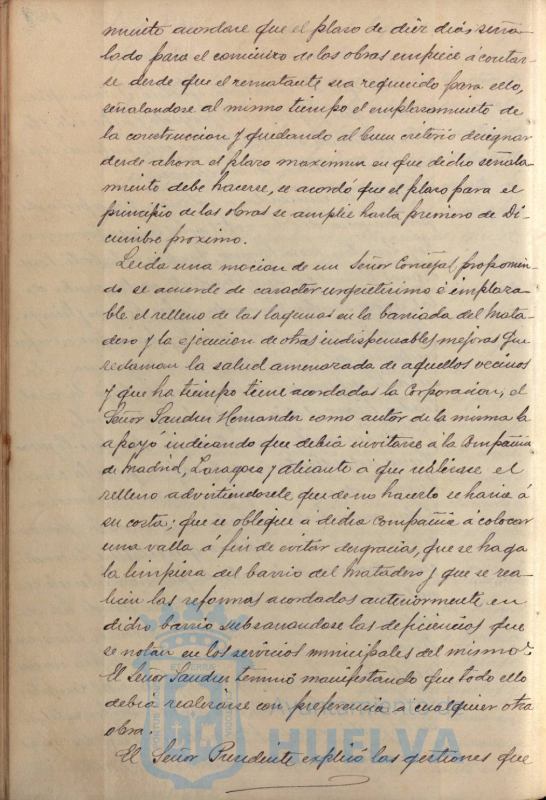 miento acordase que el plazo de diez dias seña-
lado para el comienzo de las obras empiece á contar-
se desde que el rematante sea requerido para ello,
señalandose al mismo tiempo el emplazamiento de
la construccion y quedando al buen criterio designar
desde ahora el plazo maximun en que dicho señala-
miento debe hacerse, se acordó que el plazo para el
principio de las obras se amplie hasta primero de Di-
ciembre proximo.
Leida una mocion de un Señor Concejal proponien-
do se acuerde de caracter urgentisimo é implaza-
ble el relleno de las lagunas en la barriada del Mata-
dero y la ejecucion de otras indispensables mejoras que
reclaman la salud amenazada de aquellos vecinos
y que ha tiempo tiene acordadas la Corporacion, el
Señor Sanchez Hernandez como autor de la misma la
apoyó indicando que debia invitarse a la Compañia
de Madrid, Zaragoza y Alicante á que realizase el
relleno advirtiendosele que de no hacerlo se haria á
su costa; que se obligue á dicha Compañia á colocar
una valla á fin de evitar desgracias, que se haga
la limpieza del barrio del Matadero y que se rea-
licen las reformas acordadas anteriormente en
dicho barrio subsanandose las deficiencias que
se notan en los servicios municipales del mismo.
El Señor Sanchez terminó manifestando que todo ello
debia realizarse con preferencia a cualquier otra
obra.
El Señor Presidente explicó las gestiones que
Ayuntamiento de
HUELVA